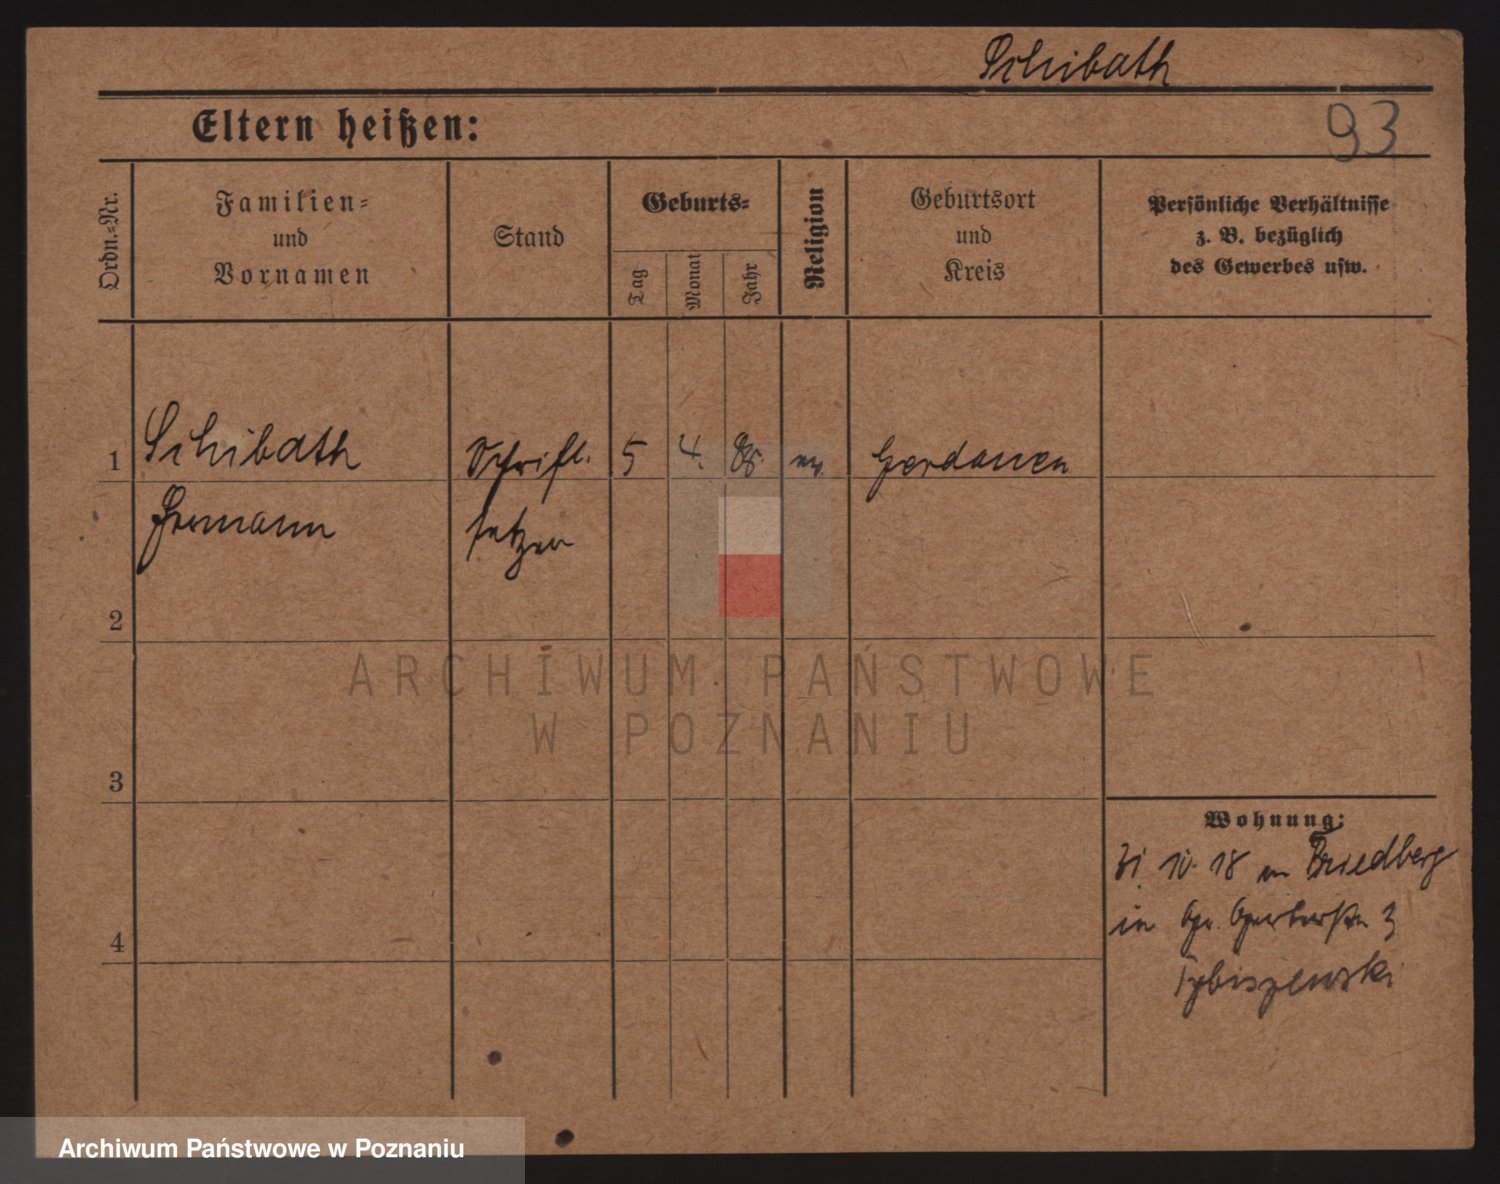 Schibath
93
Eltern heißen:
Ordn.=Nr.
Familien=
und
Vornamen
Stand
Geburts=
Tag
Monat
Jahr
Religion
Geburtsort
und
Kreis
Persönliche Verhältnisse
z. B. bezüglich
des Gewerbes usw.
1 Schibath Schrift. 5 4. ev. Gerdauen
Hermann setzer
2
3
4
Wohnung:
31. 10. 18 Friedberg
in 3
ARCHIWUM PAŃSTWOWE
W POZNANIU
Archiwum Państwowe w Poznaniu